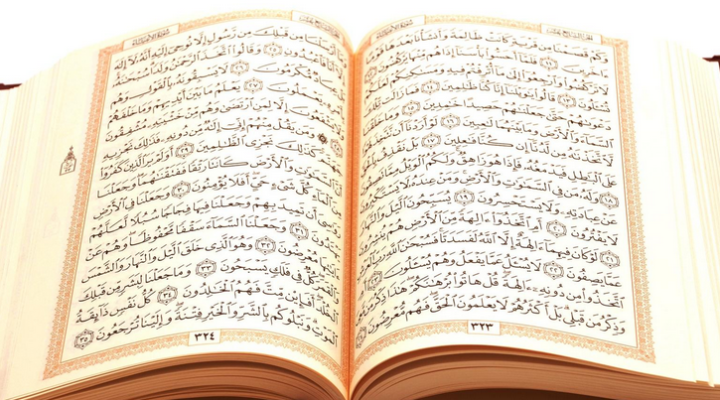 سورة الأنبياء
وَكَمْ قَصَمْنَا مِن قَرْيَةٍ كَانَتْ ظَالِمَةً وَأَنشَأْنَا بَعْدَهَا قَوْمًا
ءَاخَرِينَ ١١ فَلَمَّآ أَحَسُّوا۟ بَأْسَنَآ إِذَا هُم مِّنْهَا يَرْكُضُونَ ١٢
لَا تَرْكُضُوا۟ وَٱرْجِعُوٓا۟ إِلَىٰ مَآ أُتْرِفْتُمْ فِيهِ وَمَسَٰكِنِكُمْ لَعَلَّكُمْ
تُسْـَٔلُونَ ١٣ قَالُوا۟ يَٰوَيْلَنَآ إِنَّا كُنَّا ظَٰلِمِينَ ١٤ فَمَا زَالَت تِّلْكَ
دَعْوَىٰهُمْ حَتَّىٰ جَعَلْنَٰهُمْ حَصِيدًا خَٰمِدِينَ ١٥ وَمَا خَلَقْنَا
ٱلسَّمَآءَ وَٱلْأَرْضَ وَمَا بَيْنَهُمَا لَٰعِبِينَ ١٦ لَوْ أَرَدْنَآ أَن نَّتَّخِذَ
لَّٱتَّخَذْنَٰهُ مِن لَّدُنَّآ إِن كُنَّا فَٰعِلِينَ ١٧ بَلْ نَقْذِفُ بِٱلْحَقِّ
عَلَى ٱلْبَٰطِلِ فَيَدْمَغُهُۥ فَإِذَا هُوَ زَاهِقٌ وَلَكُمُ ٱلْوَيْلُ مِمَّا تَصِفُونَ
١٨ وَلَهُۥ مَن فِى ٱلسَّمَٰوَٰتِ وَٱلْأَرْضِ وَمَنْ عِندَهُۥ لَا يَسْتَكْبِرُونَ
عَنْ عِبَادَتِهِۦ وَلَا يَسْتَحْسِرُونَ ١٩ يُسَبِّحُونَ ٱلَّيْلَ وَٱلنَّهَارَ
لَا يَفْتُرُونَ ٢٠ أَمِ ٱتَّخَذُوٓا۟ ءَالِهَةً مِّنَ ٱلْأَرْضِ هُمْ يُنشِرُونَ
٢١ لَوْ كَانَ فِيهِمَآ ءَالِهَةٌ إِلَّا ٱللَّهُ لَفَسَدَتَا فَسُبْحَٰنَ ٱللَّهِ رَبِّ ٱلْعَرْشِ
عَمَّا يَصِفُونَ ٢٢ لَا يُسْـَٔلُ عَمَّا يَفْعَلُ وَهُمْ يُسْـَٔلُونَ ٢٣ أَمِ
ٱتَّخَذُوا۟ مِن دُونِهِۦٓ ءَالِهَةً قُلْ هَاتُوا۟ بُرْهَٰنَكُمْ هَٰذَا ذِكْرُ مَن
وَذِكْرُ مَن قَبْلِى بَلْ أَكْثَرُهُمْ لَا يَعْلَمُونَ ٱلْحَقَّ فَهُم مُّعْرِضُونَ ٢٤
٣٢٣
سورة الأنبياء
أَرْسَلْنَا مِن قَبْلِكَ مِن رَّسُولٍ إِلَّا نُوحِىٓ إِلَيْهِ أَنَّهُۥ لَآ إِلَٰهَ
إِلَّآ أَنَا۠ فَٱعْبُدُونِ ٢٥ وَقَالُوا۟ ٱتَّخَذَ ٱلرَّحْمَٰنُ وَلَدًا سُبْحَٰنَهُۥ
عِبَادٌ مُّكْرَمُونَ ٢٦ لَا يَسْبِقُونَهُۥ بِٱلْقَوْلِ وَهُم
بِأَمْرِهِۦ يَعْمَلُونَ ٢٧ يَعْلَمُ مَا بَيْنَ أَيْدِيهِمْ وَمَا خَلْفَهُمْ
وَلَا يَشْفَعُونَ إِلَّا لِمَنِ ٱرْتَضَىٰ وَهُم مِّنْ خَشْيَتِهِۦ مُشْفِقُونَ
٢٨ وَمَن يَقُلْ مِنْهُمْ إِنِّىٓ إِلَٰهٌ مِّن دُونِهِۦ فَذَٰلِكَ نَجْزِيهِ
جَهَنَّمَ كَذَٰلِكَ نَجْزِى ٱلظَّٰلِمِينَ ٢٩ أَوَلَمْ يَرَ ٱلَّذِينَ كَفَرُوٓا۟
أَنَّ ٱلسَّمَٰوَٰتِ وَٱلْأَرْضَ كَانَتَا رَتْقًا فَفَتَقْنَٰهُمَا وَجَعَلْنَا
مِنَ ٱلْمَآءِ كُلَّ شَىْءٍ حَىٍّ أَفَلَا يُؤْمِنُونَ ٣٠ وَجَعَلْنَا فِى ٱلْأَرْضِ
رَوَٰسِىَ أَن تَمِيدَ بِهِمْ وَجَعَلْنَا فِيهَا فِجَاجًا سُبُلًا لَّعَلَّهُمْ
يَهْتَدُونَ ٣١ وَجَعَلْنَا ٱلسَّمَآءَ سَقْفًا مَّحْفُوظًا وَهُمْ عَنْ
ءَايَٰتِهَا مُعْرِضُونَ ٣٢ وَهُوَ ٱلَّذِى خَلَقَ ٱلَّيْلَ وَٱلنَّهَارَ وَٱلشَّمْسَ
وَٱلْقَمَرَ كُلٌّ فِى فَلَكٍ يَسْبَحُونَ ٣٣ وَمَا جَعَلْنَا لِبَشَرٍ مِّن قَبْلِكَ
ٱلْخُلْدَ أَفَإِي۟ن مِّتَّ فَهُمُ ٱلْخَٰلِدُونَ ٣٤ كُلُّ نَفْسٍ ذَآئِقَةُ
ٱلْمَوْتِ وَنَبْلُوكُم بِٱلشَّرِّ وَٱلْخَيْرِ فِتْنَةً وَإِلَيْنَا تُرْجَعُونَ ٣٥
٣٢٤